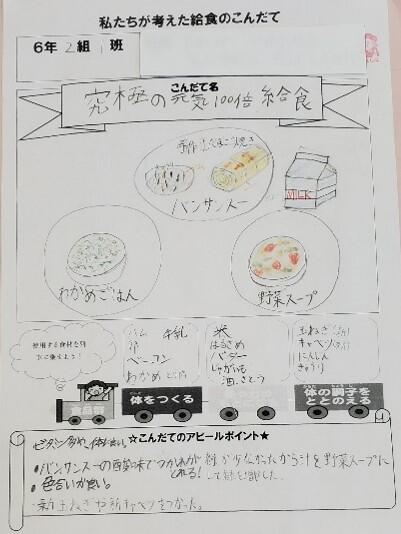 私たちが考えた給食のこんだて
6年 2組 1班
こんだて名
究極の元気100倍給食
バンサンスー
MILK
わかめごはん
野菜スープ
使用する食材を列
車に乗せよう！
ハム 牛乳
卵
ベーコン
わかめ
米
はるさめ
バター
じゃがいも
油、さとう
玉ねぎ
キャベツ
にんじん
きゅうり
体をつくる
体の調子を
ととのえる
☆こんだてのアピールポイント★
・バンサンスーの酸味でつかれがとれる！
・色合いが良い。
・新玉ねぎや新キャベツをつかった。
緑が少なかったから汁を野菜スープに
して緑を